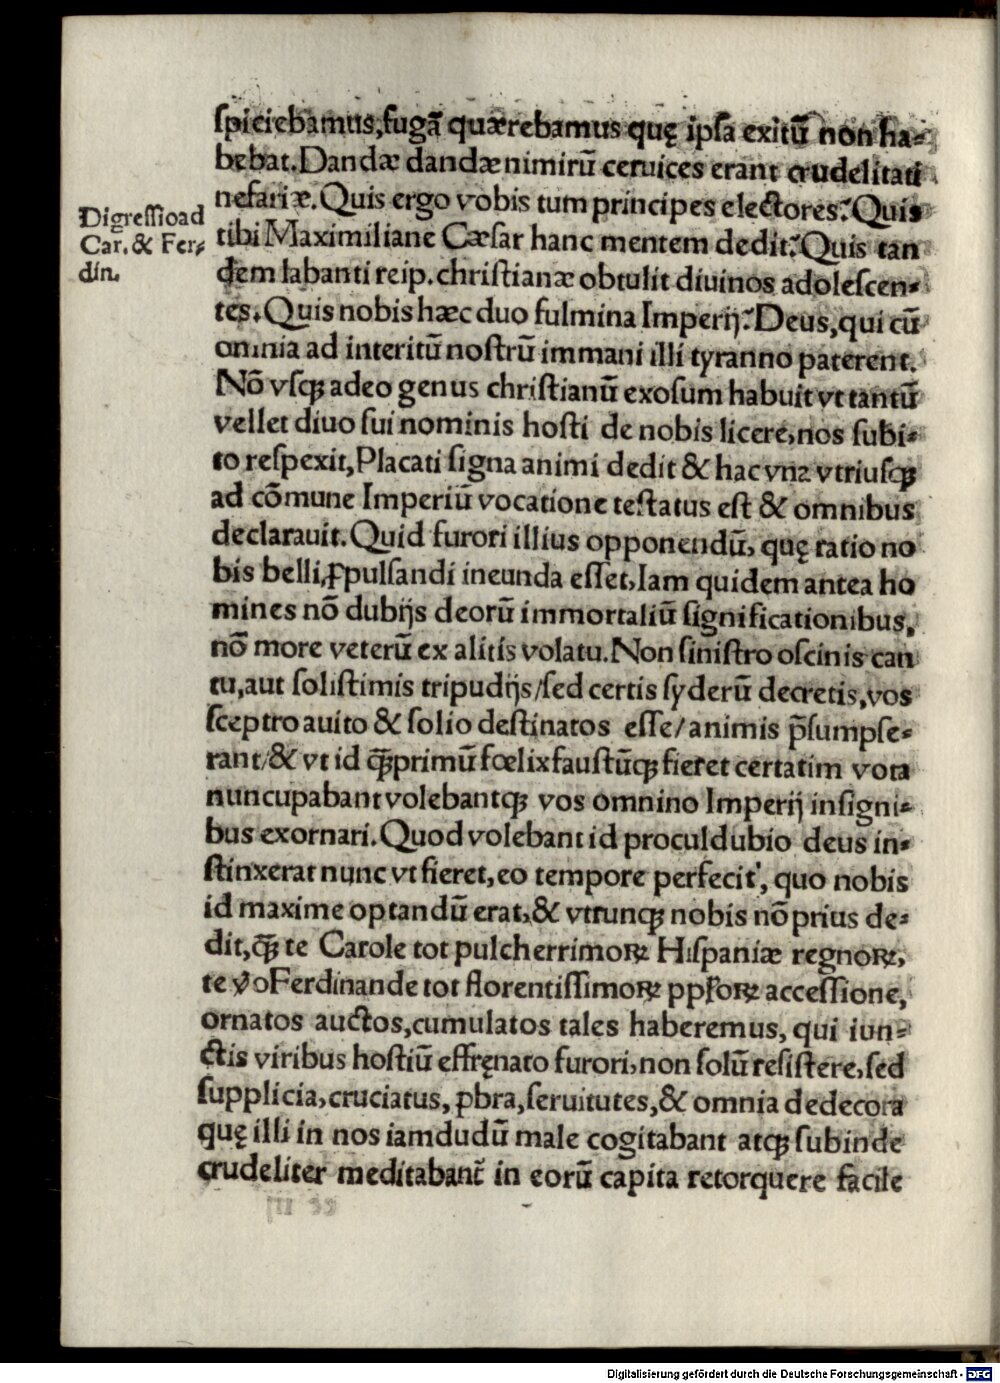 spiciebamus,fugā quærebamus quę ipſa exitū non ha⸗
bebat.Dandæ dandæ nimirū ceruices erant crudelitati
nefariæ.Quis ergo vobis tum principes electores?Quis
Digreſſio ad
Car. & Fer⸗
din.
tibi Maximiliane Cæſar hanc mentem dedit?Quis tan
dem labanti reip.chriſtianæ obtulit diuinos adoleſcen⸗
tes.Quis nobis hæc duo fulmina Imperij?Deus,qui cū
omnia ad interitū noſtrū immani illi tyranno paterent.
Nō vſqꝫ adeo genus chriſtianū exoſum habuit vt tantū
vellet diuo ſui nominis hoſti de nobis licere,nos ſubi⸗
to reſpexit,Placati ſigna animi dedit & hac vna vtriuſqꝫ
ad cōmune Imperiū vocatione teſtatus eſt & omnibus
declarauit.Quid furori illius opponendū, quę ratio no
bis belli ꝓpulſandi ineunda eſſet,Iam quidem antea ho
mines nō dubijs deorū immortaliū ſignificationibus,
nō more veterū ex alitis volatu.Non ſiniſtro oſcinis can
tu,aut ſoliſtimis tripudijs/ſed certis ſyderū decretis,vos
ſceptro auito & ſolio deſtinatos eſſe/animis p̄ſumpſe⸗
rant/& vt id qꝫ̄primū fœlix fauſtūqꝫ fieret certatim vota
nuncupabant volebantqꝫ vos omnino Imperij inſigni⸗
bus exornari.Quod volebant id proculdubio deus in⸗
ſtinxerat nunc vt fieret,eo tempore perfecit, quo nobis
id maxime optandū erat,& vtrunqꝫ nobis nō prius de⸗
dit,qꝫ̄ te Carole tot pulcherrimoꝝ Hiſpaniæ regnoꝝ,
te v̆o Ferdinande tot florentiſſimoꝝ ppl̓oꝝ acceſſione,
ornatos auctos,cumulatos tales haberemus, qui iun⸗
ctis viribus hoſtiū effręnato furori,non ſolū reſiſtere,ſed
ſupplicia,cruciatus, ꝓbra,ſeruitutes,& omnia dedecora
quę illi in nos iamdudū male cogitabant atqꝫ ſubinde
crudeliter meditabant̃ in eorū capita retorquere facile
Digitalisierung gefördert durch die Deutsche Forschungsgemeinschaft - DFG